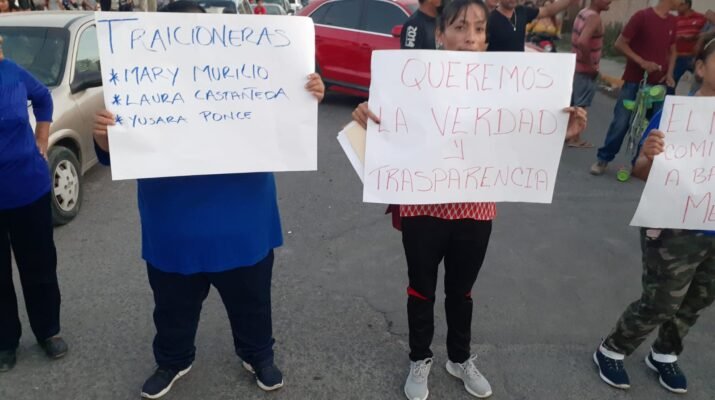 TRAICIONERAS
*MARY MURICIO
*LAURA CASTAÑEDA
*YUSARA PONCE
QUEREMOS
LA VERDAD
Y
TRASPARENCIA
EL
COMI
A BA
ME